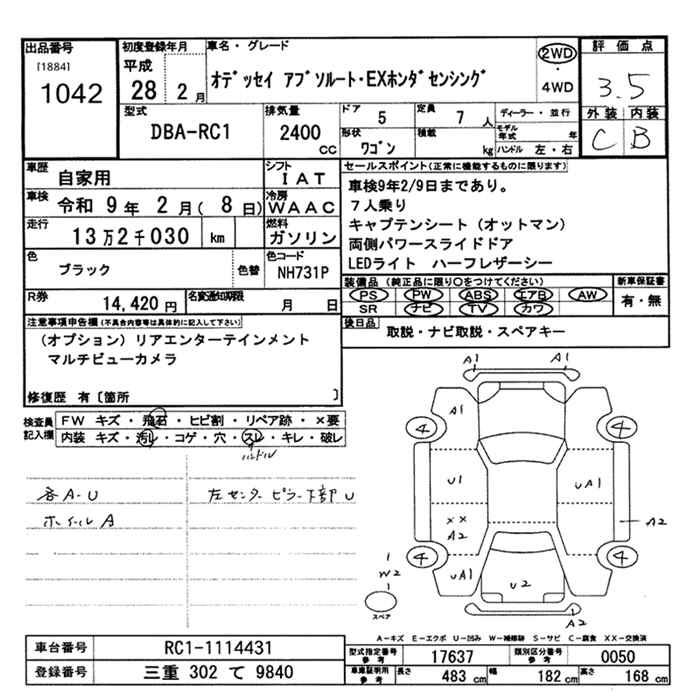 出品番号
[1884]
1042
初度登録年月
平成
28 2 月
車名・グレード
オデッセイ アブソルート・EXホンダセンシング
2WD
・
4WD
評価点
3.5
外装 内装
C B
型式
DBA-RC1
排気量
2400
CC
ドア 5
定員 7 人
形状 ワゴン
積載 kg
ディーラー・並行
モデル年式 年
ハンドル 左・右
車歴 自家用
シフト IAT
車検 令和 9年 2月( 8日)
冷房 WAAC
走行 13万2千030 km
燃料 ガソリン
色 ブラック 色替
色コード NH731P
R券 14,420円
名変通知期限 月 日
セールスポイント(正常に機能するものに限ります)
車検9年2/9日まであり。
7人乗り
キャプテンシート(オットマン)
両側パワースライドドア
LEDライト ハーフレザーシー
装備品(純正品に限り○をつけてください)
PS PW ABS エアB AW
SR ナビ TV カワ
新車保証書
有・無
後日品 取説・ナビ取説・スペアキー
注意事項申告欄(不具合内容等は具体的に記入して下さい)
(オプション)リアエンターテインメント
マルチビューカメラ
修復歴 有[箇所 ]
検査員記入欄
FW キズ・飛石・ヒビ割・リペア跡・×要
内装 キズ・汚レ・コゲ・穴・スレ・キレ・破レ
ハンドル
各A-U
ホイールA
左センターピラー下部U
A1 A1
A1
4 4
U1 UA1
××
A2
A2
4 4
W2
UA1
U2
A2
スペア
A-キズ E-エクボ U-凹み W-補修跡 S-サビ C-腐食 XX-交換済
車台番号 RC1-1114431
登録番号 三重 302 て 9840
型式指定番号 参考 17637
類別区分番号 参考 0050
車庫証明用 参考 長さ 483 cm 幅 182 cm 高さ 168 cm